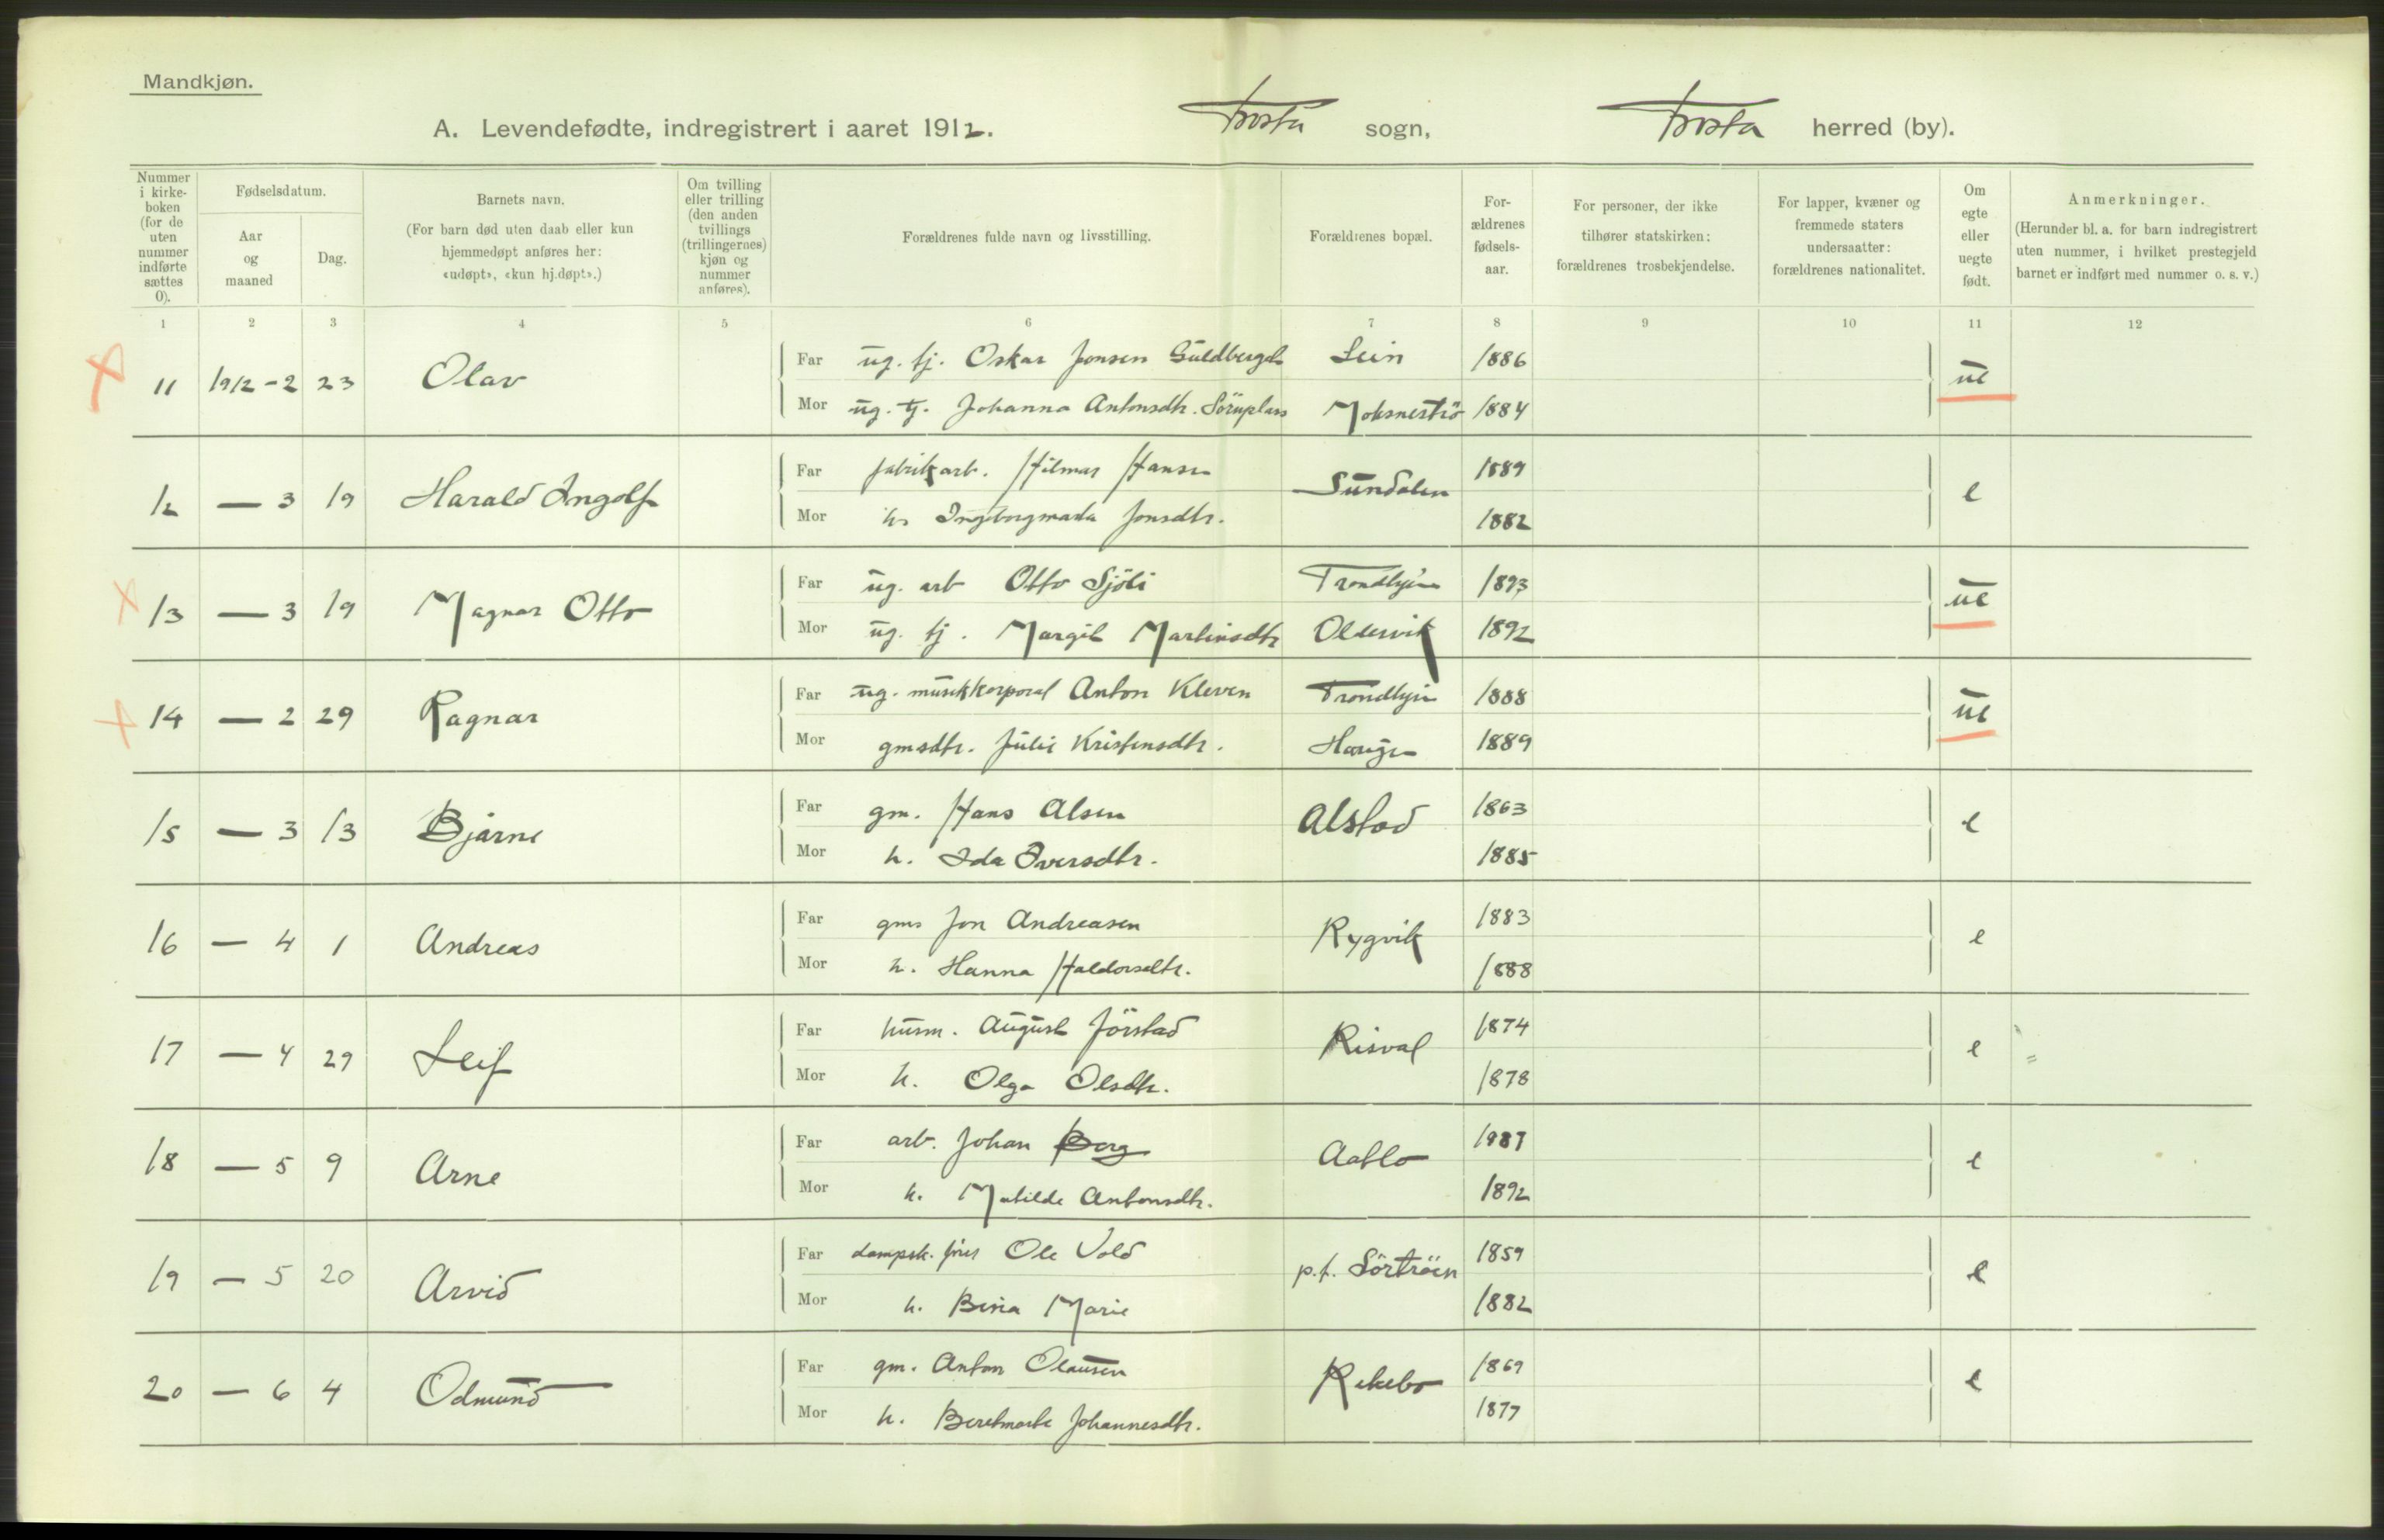 Mandkjøn.
A. Levendefødte, indregistrert i aaret 1912. Frosta sogn, Frosta herred (by).
Nummer i kirke- boken (for de uten nummer indførte sættes 0).
Fødselsdatum.
Aar og maaned
Dag.
Barnets navn.
(For barn død uten daab eller kun
hjemmedøpt anføres her:
«udøpt», «kun hj.døpt».)
Om tvilling eller trilling (den anden tvillings (trillingernes) kjøn og nummer anføres).
Forældrenes fulde navn og livsstilling.
Forældrenes bopæl.
For- ældrenes fødsels- aar.
For personer, der ikke
tilhører statskirken:
forældrenes trosbekjendelse.
For lapper, kvæner og
fremmede staters
undersaatter:
forældrenes nationalitet.
Om egte eller uegte født.
Anmerkninger.
(Herunder bl. a. for barn indregistrert
uten nummer, i hvilket prestegjeld
barnet er indført med nummer o. s. v.)
1 2 3 4 5 6 7 8 9 10 11 12
Far ug. tj. Oskar Jonsen Guldbergsh Lein 1886
11 1912-2 23 Olav ue
Mor ug. tj. Johanna Antonsdtr. Moksneströ 1884
Far fabrikarb. Hilmar Hansen 1889
12 — 3 19 Harald Ingolf Sundalen e
Mor h. Ingeborgmarta Jonsdtr. 1882
Far ug. arb Otto Sjöli Trondhjem 1893
13 — 3 19 Magnar Otto ue
Mor ug. tj. Margit Martinsdtr Oldervik 1892
Far ug. musikkorporal Anton Kleven Trondhjem 1888
14 — 2 29 Ragnar ue
Mor gmsdtr. Julie Kristensdtr. Haugen 1889
Far gm. Hans Alsen 1863
15 — 3 13 Bjarne Alstad e
Mor h. Ida Iversdtr. 1885
Far gm. Jon Andreasen 1883
16 — 4 1 Andreas Rygvik e
Mor h. Hanna Haldorsdtr. 1888
Far husm. August Jörstad 1874
17 — 4 29 Leif Risval e
Mor h. Olga Olsdtr. 1878
Far arb. Johan Berg 1887
18 — 5 9 Arne Aatlo e
Mor h. Matilde Antonsdtr. 1892
Far dampsk. förer Ole Vold 1859
19 — 5 20 Arvid p.t. Sörtröen e
Mor h. Bina Marie 1882
Far gm. Anton Olausen 1869
20 — 6 4 Odmund Rekebo e
Mor h. Beretmarta Johannesdtr. 1877